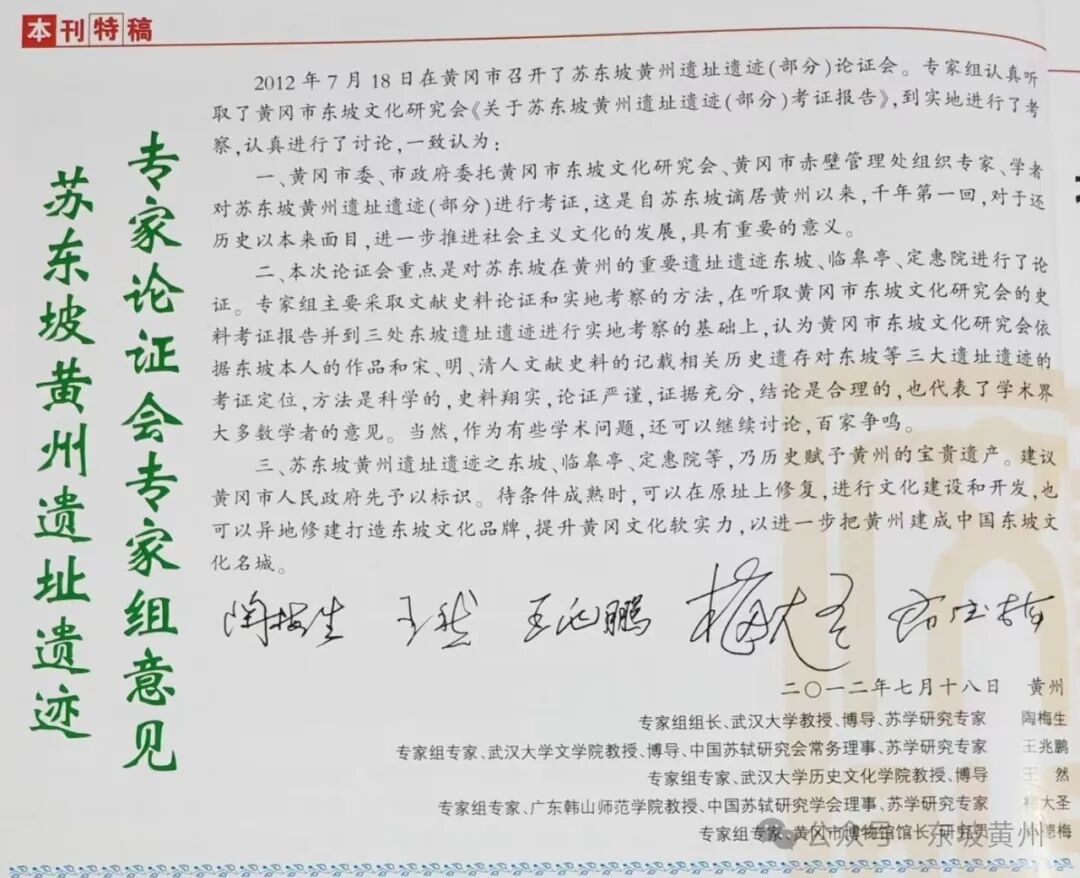 本刊特稿
苏东坡黄州遗址遗迹
专家论证会专家组意见
2012年7月18日在黄冈市召开了苏东坡黄州遗址遗迹(部分)论证会。专家组认真听
取了黄冈市东坡文化研究会《关于苏东坡黄州遗址遗迹(部分)考证报告》,到实地进行了考
察,认真进行了讨论,一致认为:
一、黄冈市委、市政府委托黄冈市东坡文化研究会、黄冈市赤壁管理处组织专家、学者
对苏东坡黄州遗址遗迹(部分)进行考证,这是自苏东坡谪居黄州以来,千年第一回,对于还
历史以本来面目,进一步推进社会主义文化的发展,具有重要的意义。
二、本次论证会重点是对苏东坡在黄州的重要遗址遗迹东坡、临皋亭、定惠院进行了论
证。专家组主要采取文献史料论证和实地考察的方法,在听取黄冈市东坡文化研究会的史
料考证报告并到三处东坡遗址遗迹进行实地考察的基础上,认为黄冈市东坡文化研究会依
据东坡本人的作品和宋、明、清人文献史料的记载相关历史遗存对东坡等三大遗址遗迹的
考证定位,方法是科学的,史料翔实,论证严谨,证据充分,结论是合理的,也代表了学术界
大多数学者的意见。当然,作为有些学术问题,还可以继续讨论,百家争鸣。
三、苏东坡黄州遗址遗迹之东坡、临皋亭、定惠院等,乃历史赋予黄州的宝贵遗产。建议
黄冈市人民政府先予以标识。待条件成熟时,可以在原址上修复,进行文化建设和开发,也
可以异地修建打造东坡文化品牌,提升黄冈文化软实力,以进一步把黄州建成中国东坡文
化名城。
陶梅生 王然 王兆鹏 梅大圣
二〇一二年七月十八日 黄州
专家组组长、武汉大学教授、博导、苏学研究专家 陶梅生
专家组专家、武汉大学文学院教授、博导、中国苏轼研究会常务理事、苏学研究专家 王兆鹏
专家组专家、武汉大学历史文化学院教授、博导 王然
专家组专家、广东韩山师范学院教授、中国苏轼研究学会理事、苏学研究专家 梅大圣
专家组专家、黄冈市博物馆馆长、研究员 德梅
公众号 东坡黄州